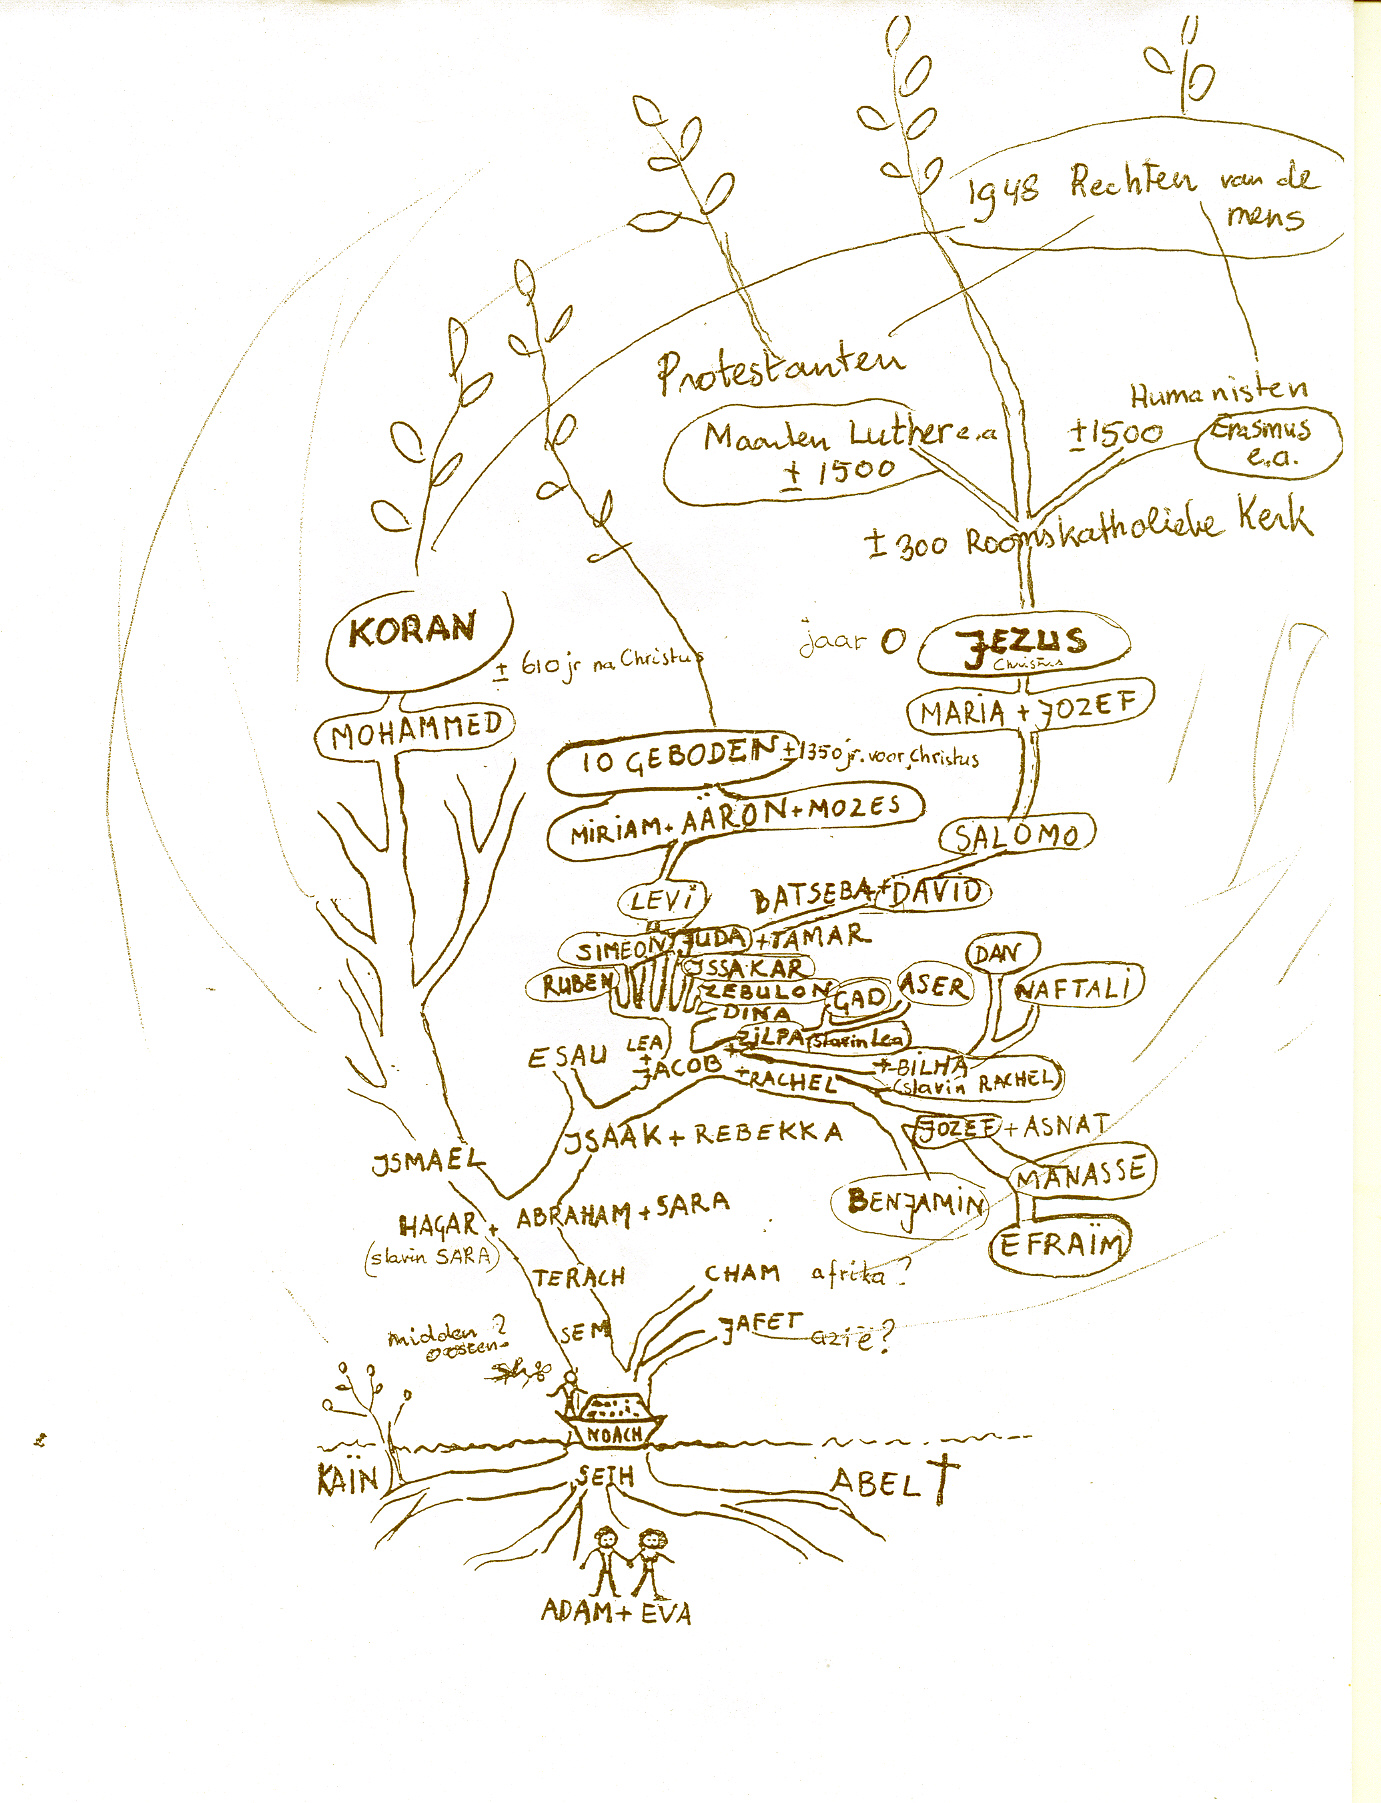 1948 Rechten van de
mens
Protestanten
Humanisten
Maarten Luther e.a
± 1500
± 1500
Erasmus
e.a.
± 300 Roomskatholieke Kerk
KORAN
± 610 jr na Christus
jaar 0
JEZUS
Christus
MARIA + JOZEF
MOHAMMED
10 GEBODEN
± 1350 jr. voor Christus
MIRIAM + AÄRON + MOZES
SALOMO
LEVI
BATSEBA + DAVID
SIMEON
JUDA + TAMAR
DAN
RUBEN
ISSAKAR
ZEBULON
GAD
ASER
NAFTALI
DINA
ZILPA (slavin Lea)
ESAU
LEA
+
JACOB
+ RACHEL
+ BILHA
(slavin RACHEL)
JOZEF + ASNAT
ISAAK + REBEKKA
ISMAEL
MANASSE
BENJAMIN
EFRAÏM
HAGAR + ABRAHAM + SARA
(slavin SARA)
TERACH
CHAM afrika?
SEM
JAFET azië?
midden ?
oosten
NOACH
KAÏN
SETH
ABEL
ADAM + EVA